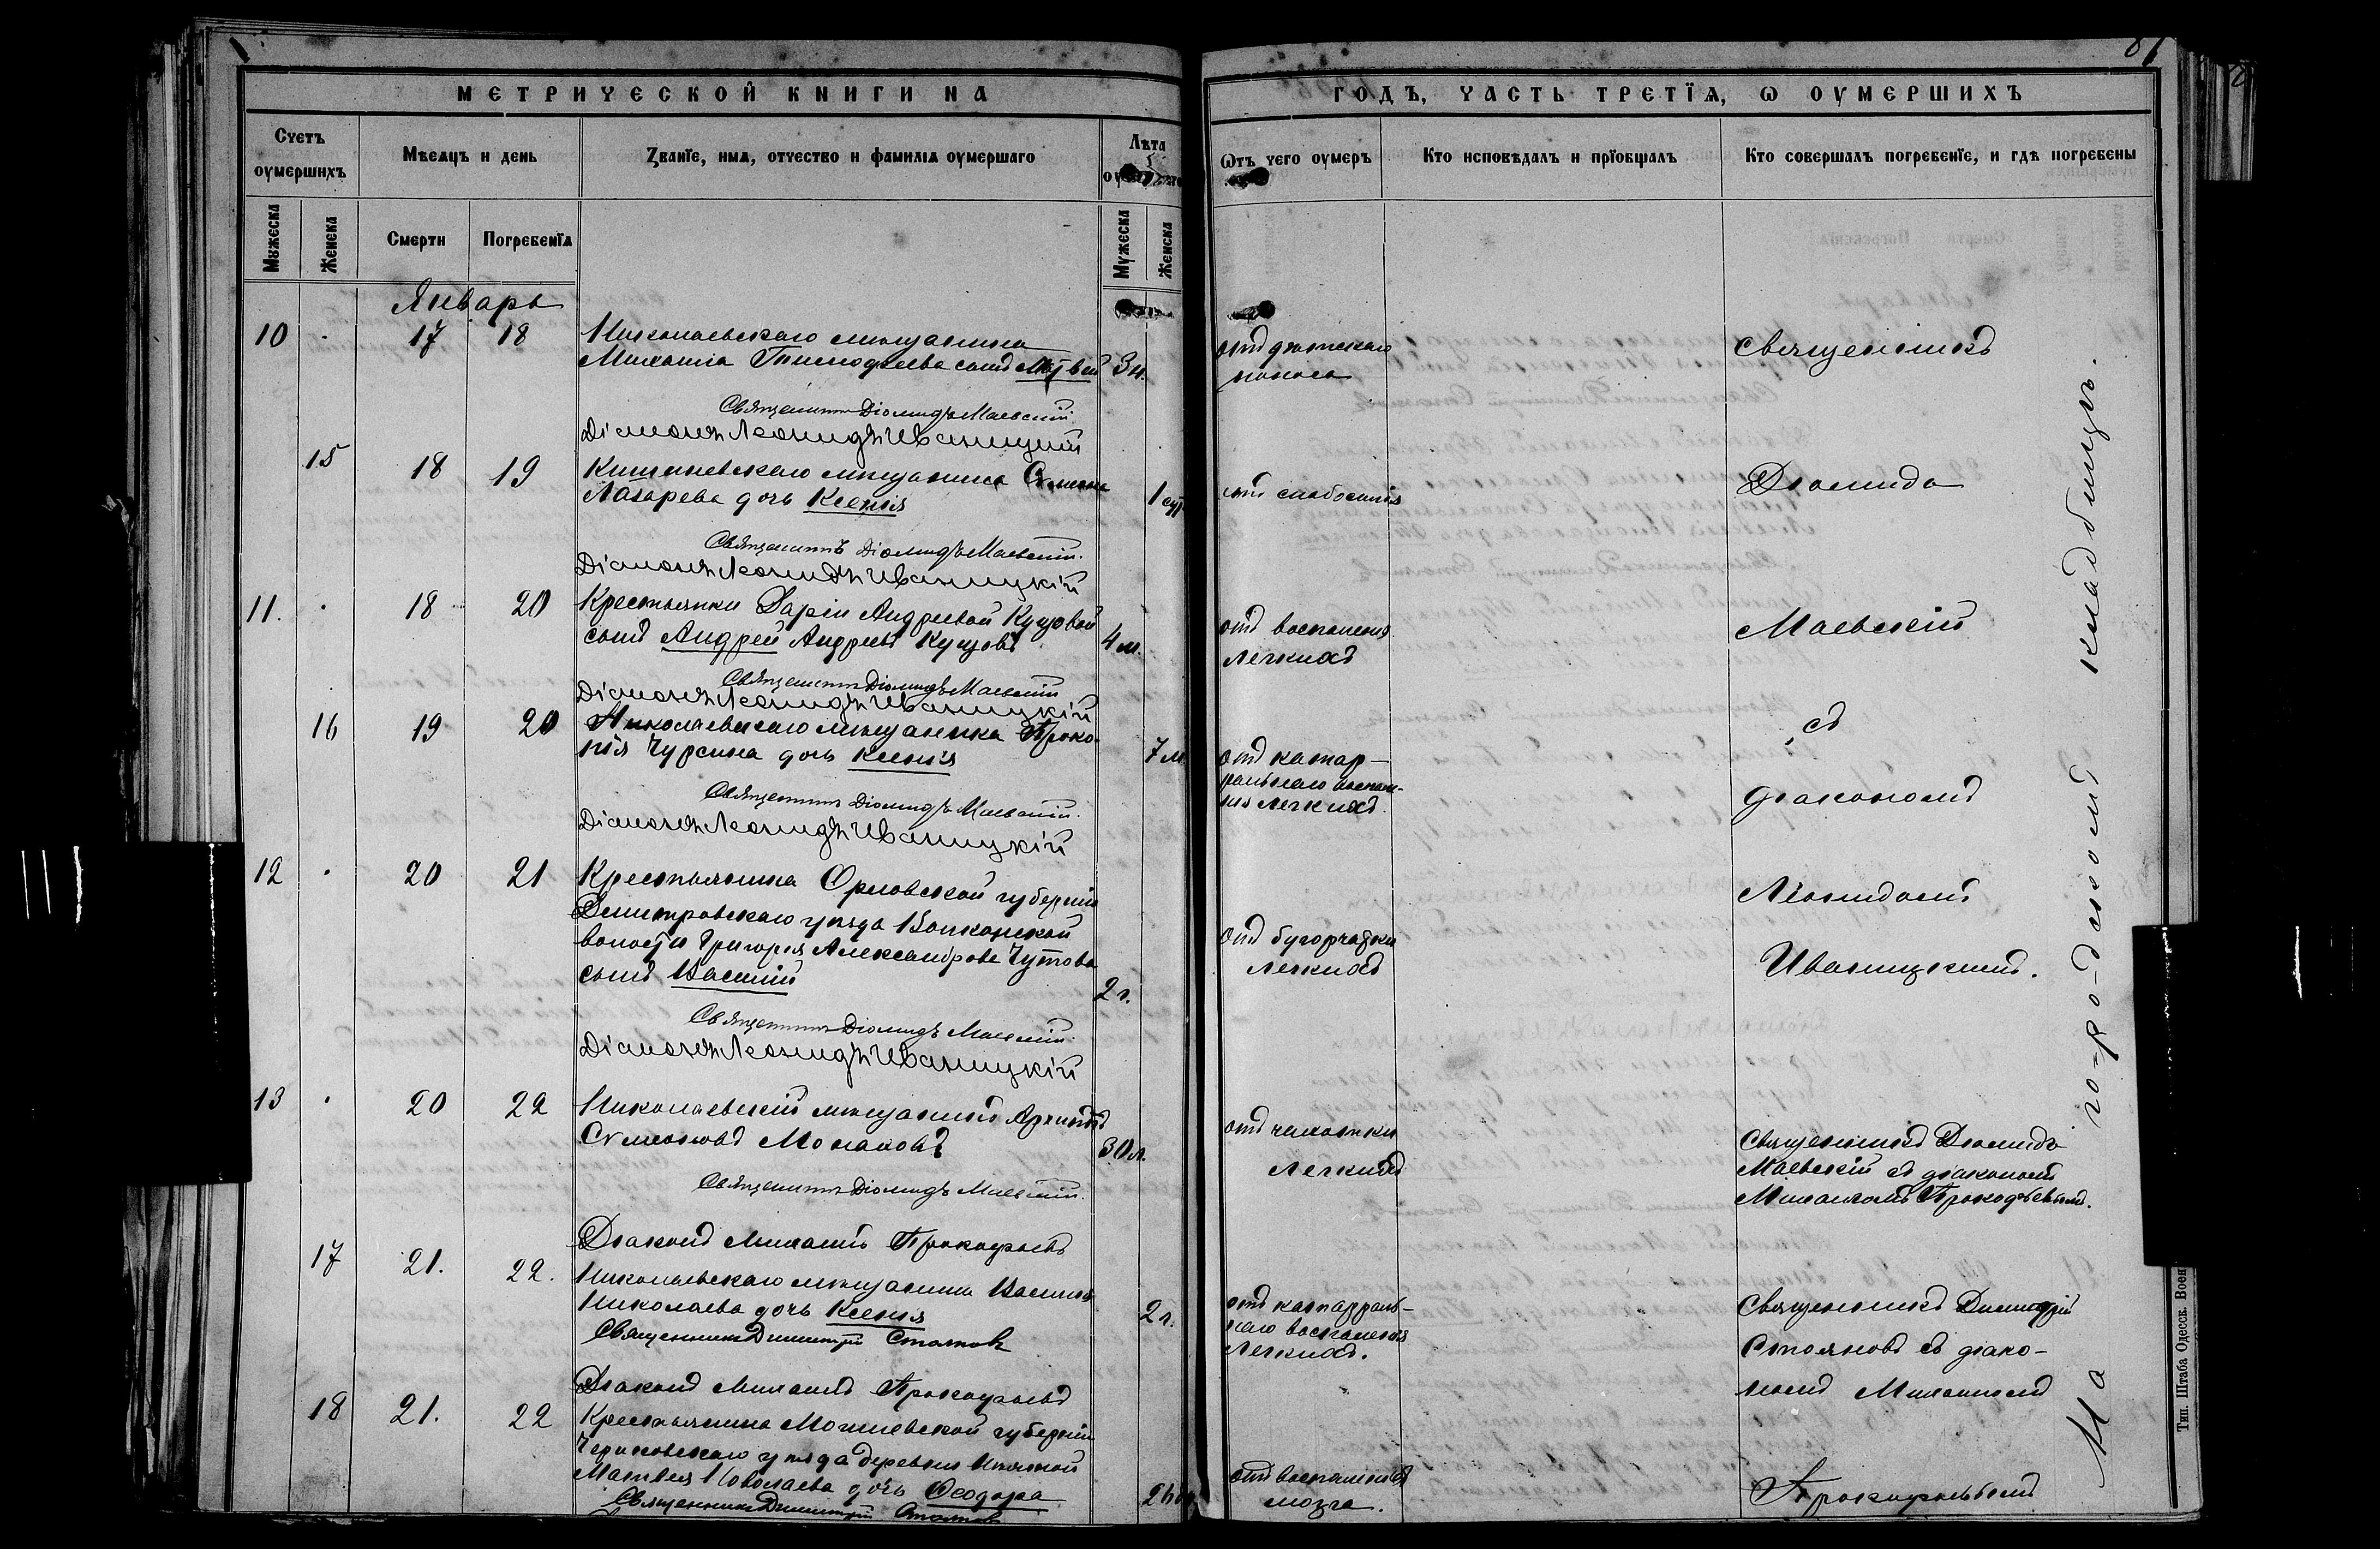 81
МЕТРИЧЕСКОЙ КНИГИ НА
ГОДЪ, ЧАСТЬ ТРЕТІѦ, Ѡ ОУМЕРШИХЪ
Счетъ оумершихъ
Мѣсяцъ и день
Званїе, имя, отчество и фамилїя оумершаго
Лѣта
Ѿтъ чего оумеръ
Кто исповѣдалъ и прїобщалъ
Кто совершалъ погребенїе, и гдѣ погребены
Мужеска
Женска
Смерти
Погребенїя
Мужеска
Женска
Январь
10 17 18 Николаевскаго мѣщанина
Михаила Тимофеева сынъ Матвей 3 н.
отъ дѣтскаго
поноса
Священникъ
Священникъ Діомидъ Маевскій
Діаконъ Леонидъ Иваницкій
15 18 19 Кишиневскаго мѣщанина Симеона
Лазарева дочь Ксенія 1 сут.
отъ слабосилія
Діомидъ
Священникъ Діомидъ Маевскій.
Діаконъ Леонидъ Иваницкій
11. 18 20 Крестьянки Даріи Андреевой Куцовой
сынъ Андрей Андреевъ Куцовъ 4 м.
отъ воспаленія
легкихъ
Маевскій
Священникъ Діомидъ Маевскій
Діаконъ Леонидъ Иваницкій
16 19 20 Николаевскаго мѣщанина Проко-
пія Чурсина дочь Ксенія 7 м.
отъ катар-
ральнаго воспале-
нія легкихъ.
съ
діакономъ
Священникъ Діомидъ Маевскій.
Діаконъ Леонидъ Иваницкій
12 20 21 Крестьянина Орловской губерніи
Дмитровскаго уѣзда
волости Григорія Александрова Чутова
сынъ Василій 2 г.
отъ бугорчатки
легкихъ
Леонидомъ
Иваницкимъ.
Священникъ Діомидъ Маевскій.
Діаконъ Леонидъ Иваницкій
13 20 22 Николаевскій мѣщанинъ Архипъ
Симеоновъ 30 л.
отъ чахотки
легкихъ
Священникъ Діомидъ
Маевскій съ діакономъ
Михаиломъ Прокофьевымъ.
Священникъ Діомидъ Маевскій.
Діаконъ Михаилъ Прокофьевъ
17 21. 22. Николаевскаго мѣщанина Василія
Николаева дочь Ксенія 2 г.
отъ катарраль-
наго воспаленія
легкихъ.
Священникъ Димитрій
Стояновъ съ діако-
номъ Михаиломъ
Прокофьевымъ
Священникъ Димитрій Стояновъ
Діаконъ Михаилъ Прокофьевъ
18 21. 22 Крестьянина Могилевской губерніи
Чериковскаго уѣзда деревни
Матвея дочь Ѳеодора
отъ воспаленія
мозга.
Священникъ Димитрій Стояновъ
На го-ро-дскомъ кладбищѣ.
Тип. Штаба Одесск. Воен